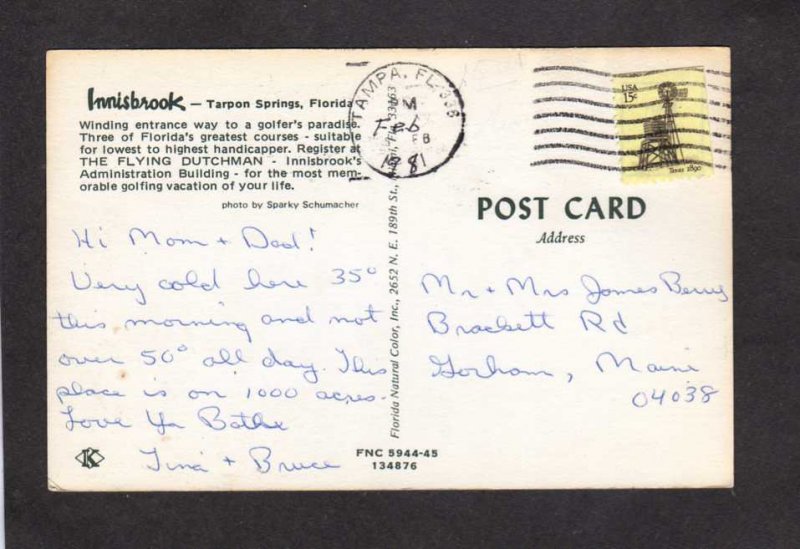 Innisbrook — Tarpon Springs, Florida
Winding entrance way to a golfer's paradise.
Three of Florida's greatest courses - suitable
for lowest to highest handicapper. Register at
THE FLYING DUTCHMAN - Innisbrook's
Administration Building - for the most mem-
orable golfing vacation of your life.
photo by Sparky Schumacher
Hi Mom + Dad!
Very cold here 35°
this morning and not
over 50° all day. This
place is on 1000 acres.
Love Ya Bothe
Tina + Bruce
K
Florida Natural Color, Inc., 2652 N. E. 189th St.,
FNC 5944-45
134876
TAMPA, FL 336
PM
Feb
FB
1981
USA
15c
Texas 1890
POST CARD
Address
Mr + Mrs James Berry
Brackett Rd
Gorham, Maine
04038